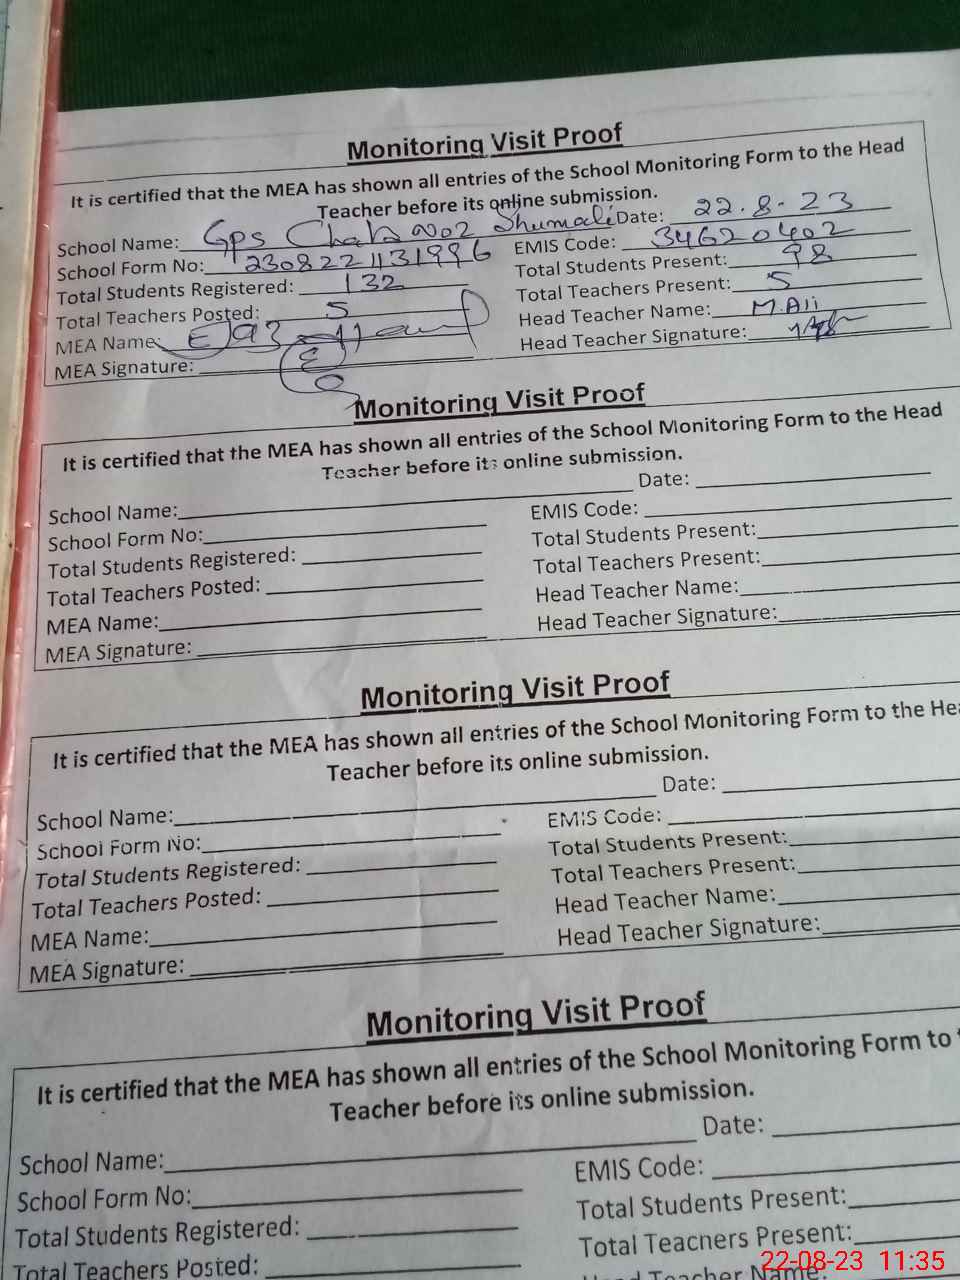 Monitoring Visit Proof
It is certified that the MEA has shown all entries of the School Monitoring Form to the Head
Teacher before its online submission.
School Name: GPS Chak No2 Shumali Date: 22.8.23
School Form No: EMIS Code: 34620402
Total Students Registered: 132 Total Students Present: 98
Total Teachers Posted: 5 Total Teachers Present: 5
MEA Name: Head Teacher Name: M.Ali
MEA Signature: Head Teacher Signature:
Monitoring Visit Proof
It is certified that the MEA has shown all entries of the School Monitoring Form to the Head
Teacher before its online submission.
School Name: Date:
School Form No: EMIS Code:
Total Students Registered: Total Students Present:
Total Teachers Posted: Total Teachers Present:
MEA Name: Head Teacher Name:
MEA Signature: Head Teacher Signature:
Monitoring Visit Proof
It is certified that the MEA has shown all entries of the School Monitoring Form to the Hea
Teacher before its online submission.
School Name: Date:
School Form No: EMIS Code:
Total Students Registered: Total Students Present:
Total Teachers Posted: Total Teachers Present:
MEA Name: Head Teacher Name:
MEA Signature: Head Teacher Signature:
Monitoring Visit Proof
It is certified that the MEA has shown all entries of the School Monitoring Form to
Teacher before its online submission.
School Name: Date:
School Form No: EMIS Code:
Total Students Registered: Total Students Present:
Total Teachers Posted: Total Teachers Present:
Head Teacher Name:
22-08-23 11:35